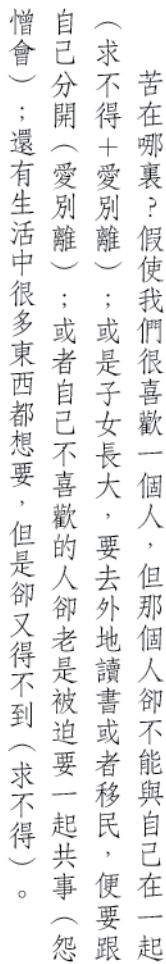 苦在哪裏？假使我們很喜歡一個人，但那個人卻不能與自己在一起
（求不得＋愛別離）；或是子女長大，要去外地讀書或者移民，便要跟
自己分開（愛別離）；或者自己不喜歡的人卻老是被迫要一起共事（怨
憎會）；還有生活中很多東西都想要，但是卻又得不到（求不得）。